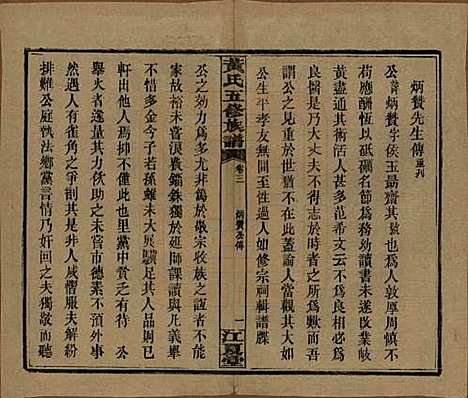 炳贊先生傳 重刋
公諱炳贊字侯玉勗齋其號也爲人敦厚周愼不
苟應酬恆以砥礪名節爲務幼讀書未遂改業岐
黃盡通其術甚多范希文云不爲良相當爲良醫
良醫是乃大丈夫救人利物之所爲歟而吾
謂公之度量世無出此蓋論人當觀其大
公生平孝友無間至性過人如修宗祠輯譜牒
公之効力爲多尤非於敬宗收族之誼者不能
家故裕未嘗沮貲錙銖獨於延師課讀與凡義舉
不惜多金今子若孫雖未大振讀足其人品
軒出他人焉抑不但此里黨中貲乏有待 公
舉火者遂量其力佽助之未嘗市德素不預外事
然遇人雀角之爭片言立解非人咸懾服夫解紛
排難公庭執法鄉黨言情乃奸回之夫獨敬而聽
黃氏五修族譜
卷三
炳贊公傳
一
江夏堂